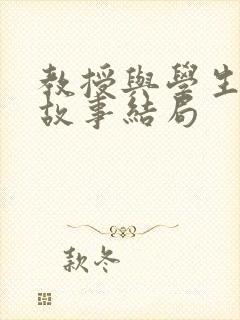 教授與學生
故事結局
款冬